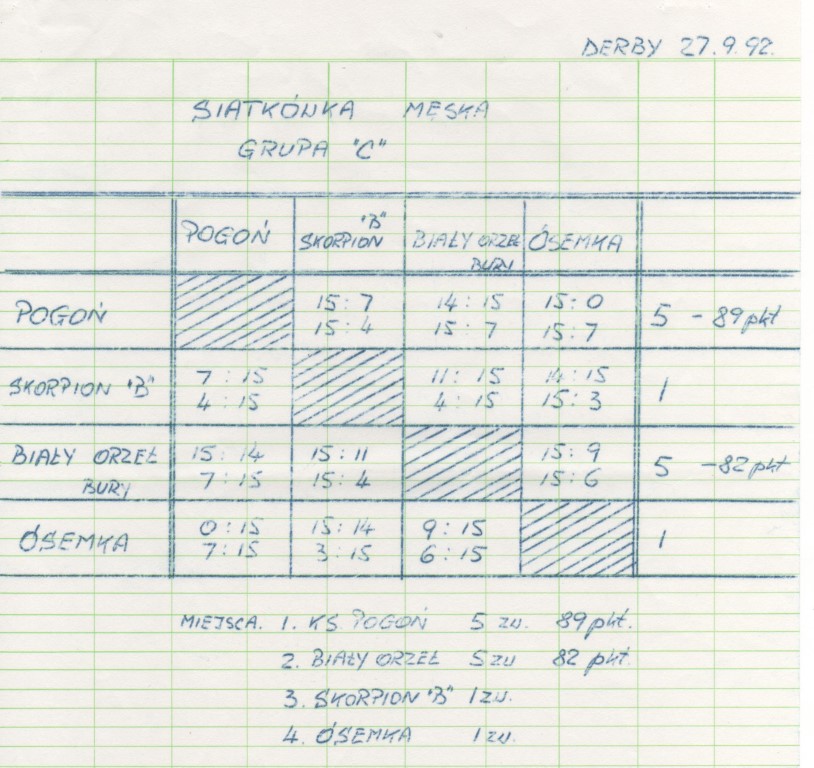 DERBY 27.9.92.
SIATKÓWKA MĘSKA
GRUPA "C"
POGOŃ SKORPION "B" BIAŁY ORZEŁ BURY ÓSEMKA
POGOŃ 15:7 14:15 15:0 5 - 89 pkt
15:4 15:7 15:7
SKORPION "B" 7:15 11:15 14:15 1
4:15 4:15 15:3
BIAŁY ORZEŁ 15:14 15:11 15:9 5 - 82 pkt
BURY 7:15 15:4 15:6
ÓSEMKA 0:15 15:14 9:15 1
7:15 3:15 6:15
MIEJSCA. 1. KS POGOŃ 5 zw. 89 pkt.
2. BIAŁY ORZEŁ 5 zw 82 pkt.
3. SKORPION "B" 1 zw.
4. ÓSEMKA 1 zw.